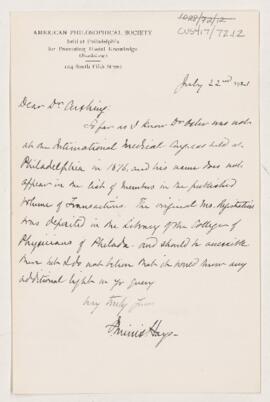 1028/72/2
CUS417/72.12
AMERICAN PHILOSOPHICAL SOCIETY
held at Philadelphia
for Promoting Useful Knowledge
104 South Fifth Street
July 22nd 1921
Dear Dr. Cushing
So far as I know Dr. Osler was not
at the International Medical Congress held at
Philadelphia in 1876, and his name does not
appear in the list of members in the published
volume of Transactions. The original Ms. Registration
was deposited in the Library of the College of
Physicians of Philada. and should be accessible
there but I do not believe that it would throw any
additional light on yr query
Very truly yours
Minis Hays